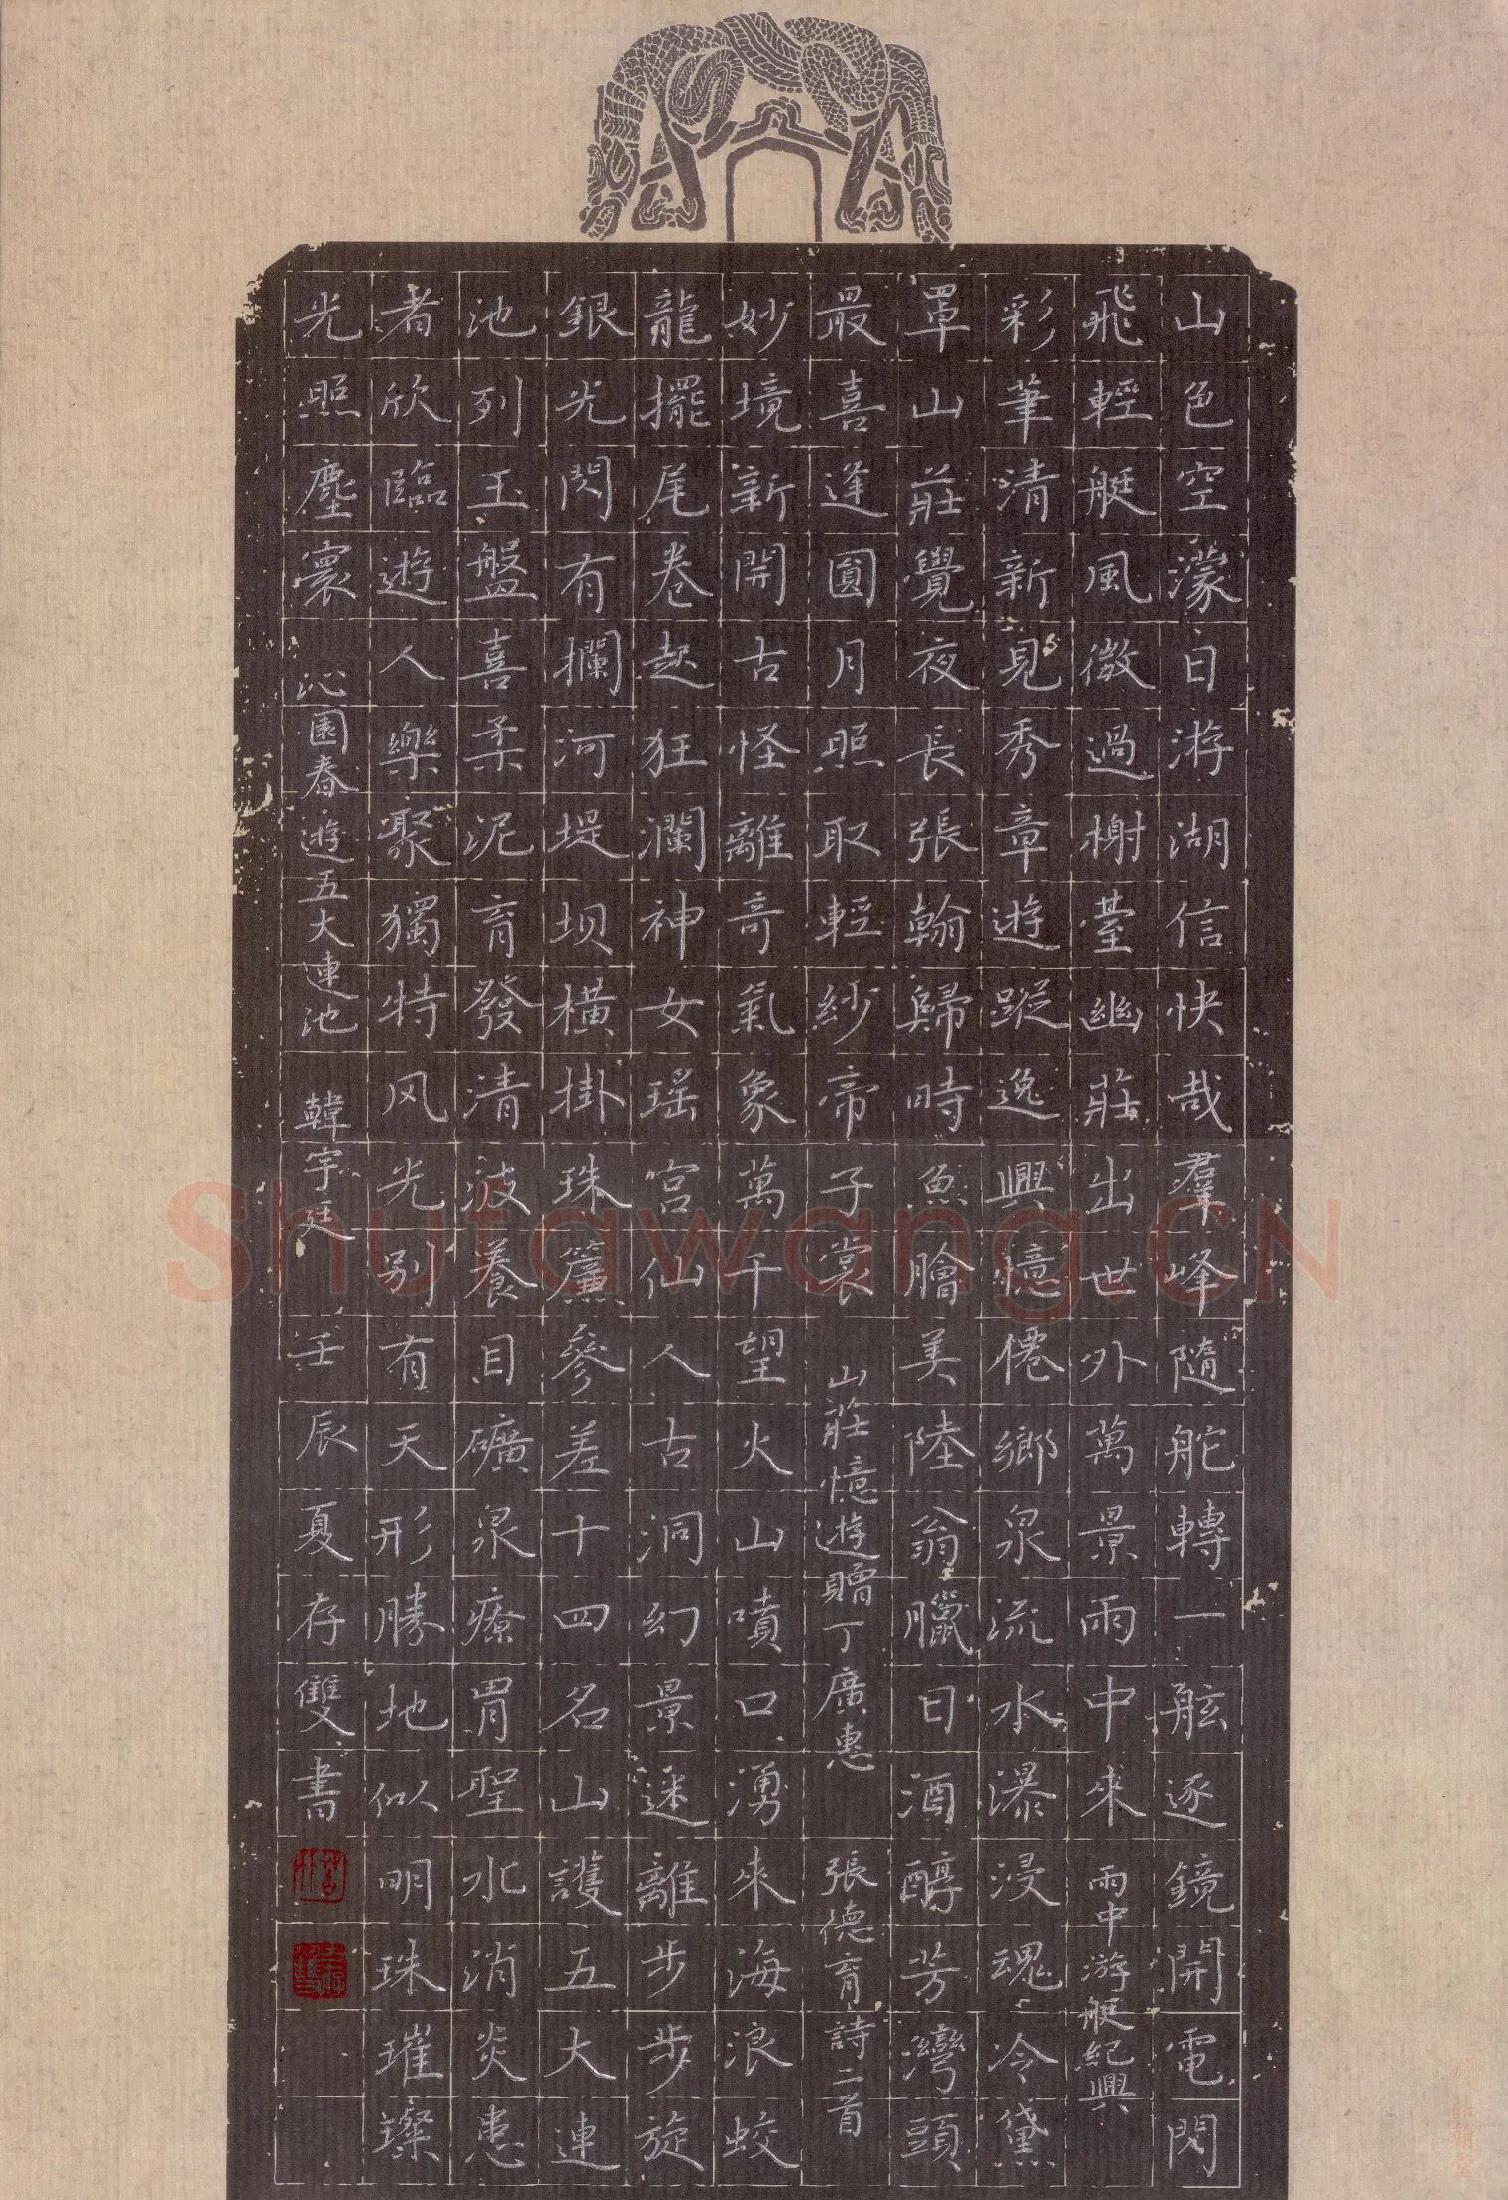 山色空濛日游湖信快哉羣峰隨舵轉一舷逐鏡開電閃
飛輕艇風微過榭臺幽莊出世外萬景雨中來 雨中游艇紀興
彩筆清新見秀章遊蹤逸興憶僊鄉泉流水瀑浸魂冷黛
罩山莊覺夜長張翰歸時魚膾美陸翁臘日酒醇芳灣頭
最喜逢圓月照取輕紗帝子裳 山莊憶遊贈丁廣惠 張德育詩二首
妙境新開古怪離奇氣象萬千望火山噴口湧來海浪蛟
龍擺尾卷起狂瀾神女瑶宮仙人古洞幻景迷離步步旋
銀光閃有攔河堤坝橫掛珠簾參差十四名山護五大連
池列玉盤喜柔泥育發清波養目礦泉療胃聖水消炎患
者欣臨遊人樂聚獨特风光别有天形勝地似明珠璀璨
光照塵寰 沁園春遊五大連池 韓宇廷 壬辰夏存雙書
Shufawang.CN